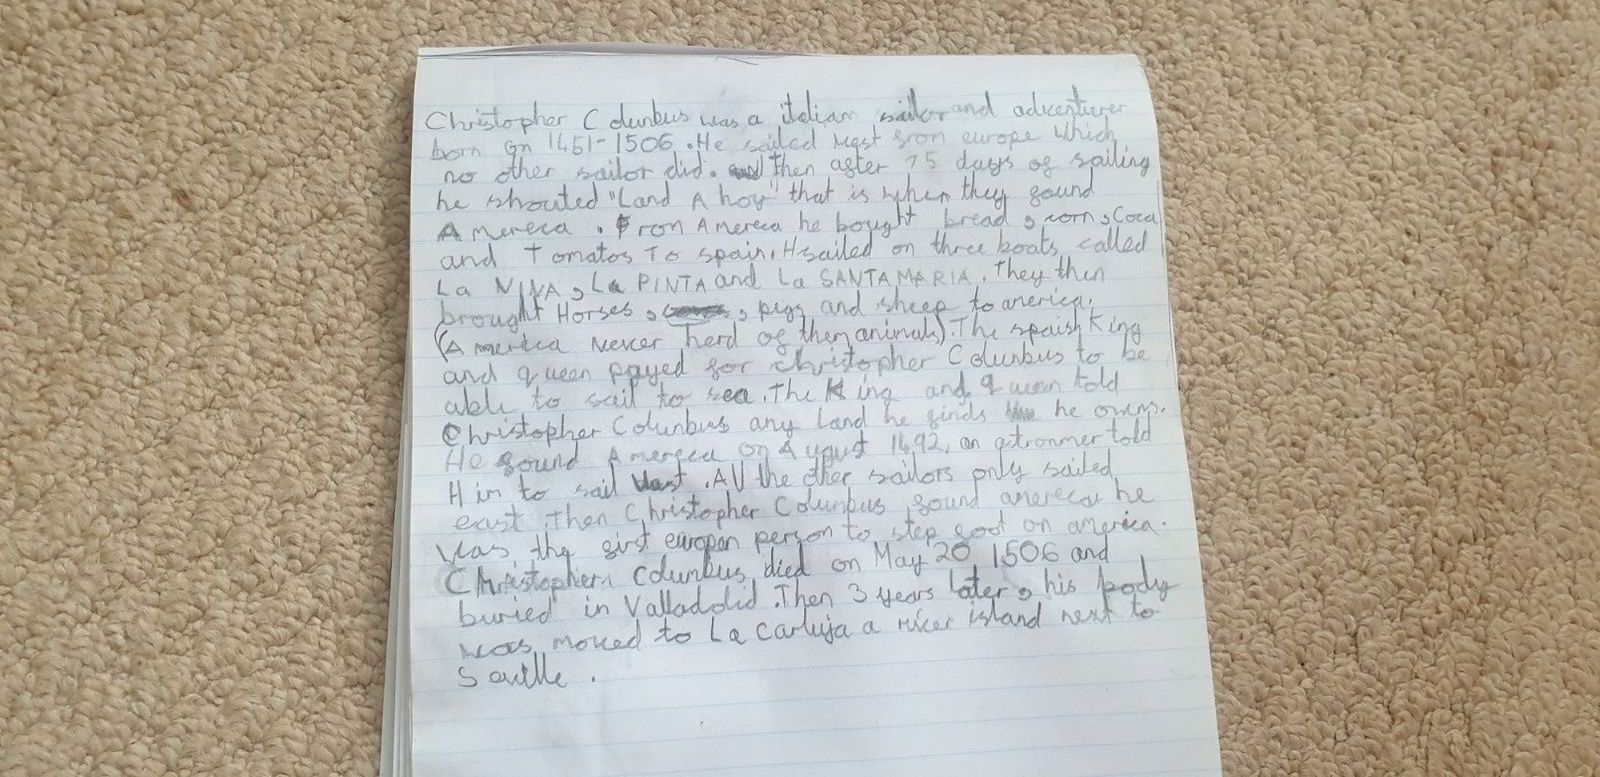 Christopher Columbus was a italian sailor and adventurer
born on 1451-1506. He sailed west from europe which
no other sailor did. then after 75 days of sailing
he shouted "Land A hoy" that is when they found
Amereca. From Amereca he bought bread, corn, Coca
and Tomatos To spain. H sailed on three boats, called
La NINA, La PINTA and La SANTA MARIA. They then
brought Horses, , pigs and sheep to america.
(Amereca never herd of them animals). The spaish King
and queen payed for christopher Columbus to be
able to sail to sea. The King and queen told
Christopher Columbus any Land he finds he owns.
He found Amereca on August 1492, an astronmer told
Him to sail West. All the other sailors only sailed
east. Then Christopher Columbus found amereca he
was the first europan person to step foot on america.
Christopher Columbus, died on May 20 1506 and
buried in Valladolid. Then 3 years later, his body
was moved to La Cartuja a river island next to
Seville.